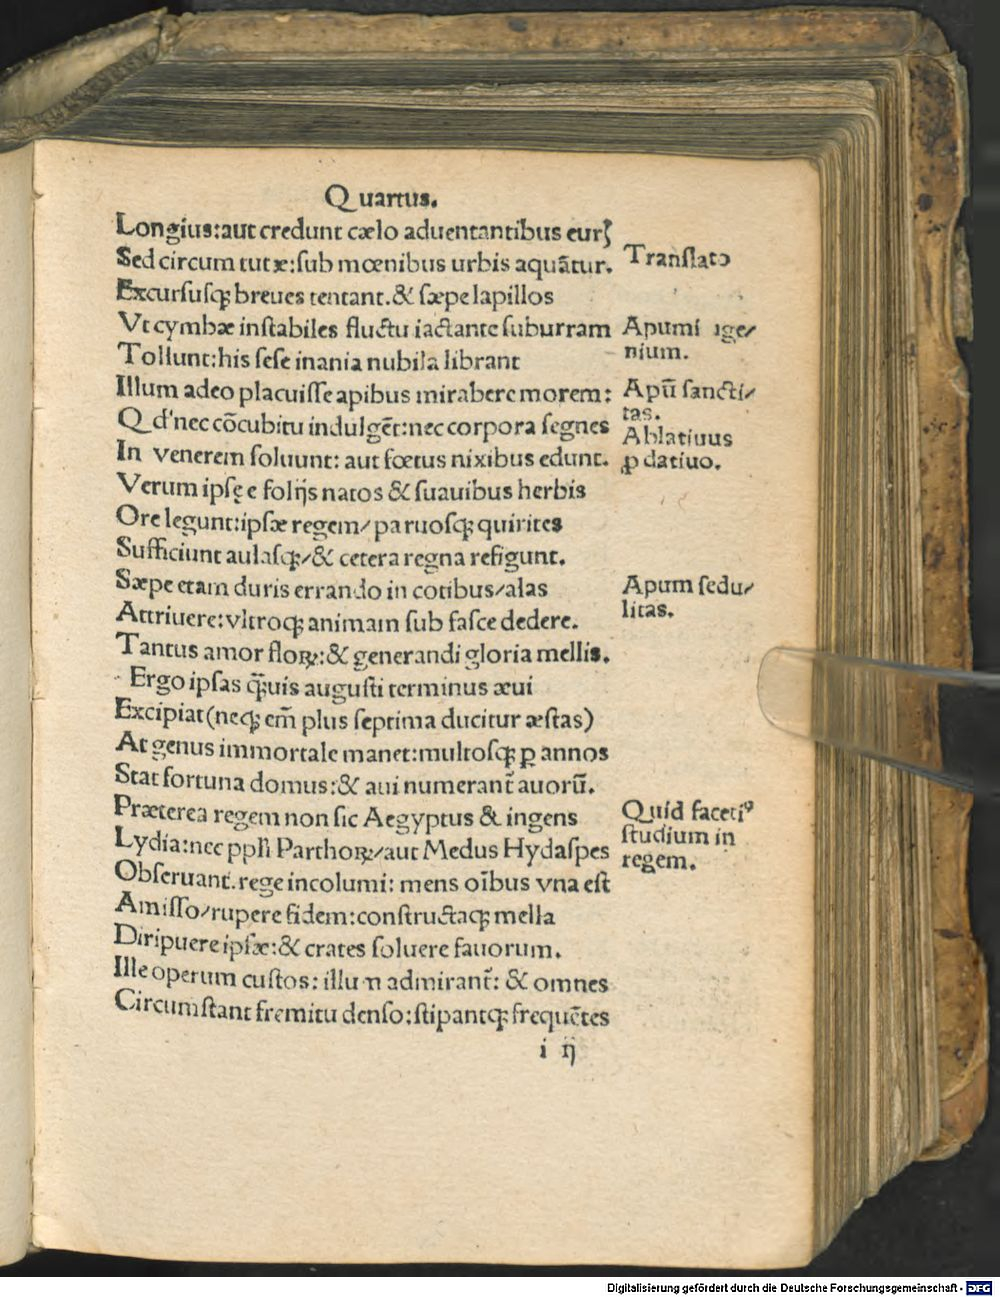 Quartus.
Longius:aut credunt cælo aduentantibus eurꝭ
Sed circum tutæ:sub mœnibus urbis aquãtur.
Translatio
Excursusqꝫ breues tentant.& sæpe lapillos
Vt cymbæ instabiles fluctu iactante suburram
Apumi ĩge/
Tollunt:his sese inania nubila librant
nium.
Illum adeo placuisse apibus mirabere morem:
Apũ sancti/
tas.
Qd' nec cõcubitu indulgẽt:nec corpora segnes
Ablatiuus
In venerem soluunt: aut fœtus nixibus edunt.
ꝓ datiuo.
Verum ipsę e folijs natos & suauibus herbis
Ore legunt:ipsæ regem/ paruosqꝫ quirites
Sufficiunt aulasqꝫ/& cetera regna refigunt.
Sæpe etam duris errando in cotibus/alas
Apum sedu/
Attriuere:vltroqꝫ animam sub fasce dedere.
litas.
Tantus amor floꝝ:& generandi gloria mellis.
Ergo ipsas q̃uis augusti terminus æui
Excipiat(neqꝫ em̃ plus septima ducitur æstas)
At genus immortale manet:multosqꝫ ꝑ annos
Stat fortuna domus:& aui numerant̃ auorũ.
Præterea regem non sic Aegyptus & ingens
Quid faceti⁹
studium in
Lydia:nec ppl'i Parthoꝝ/aut Medus Hydaspes
regem.
Obseruant.rege incolumi: mens oĩbus vna est
Amisso/rupere fidem:constructaqꝫ mella
Diripuere ipsæ:& crates soluere fauorum.
Ille operum custos: illum admirant̃: & omnes
Circumstant fremitu denso:stipantqꝫ frequẽtes
i ij
Digitalisierung gefördert durch die Deutsche Forschungsgemeinschaft - DFG